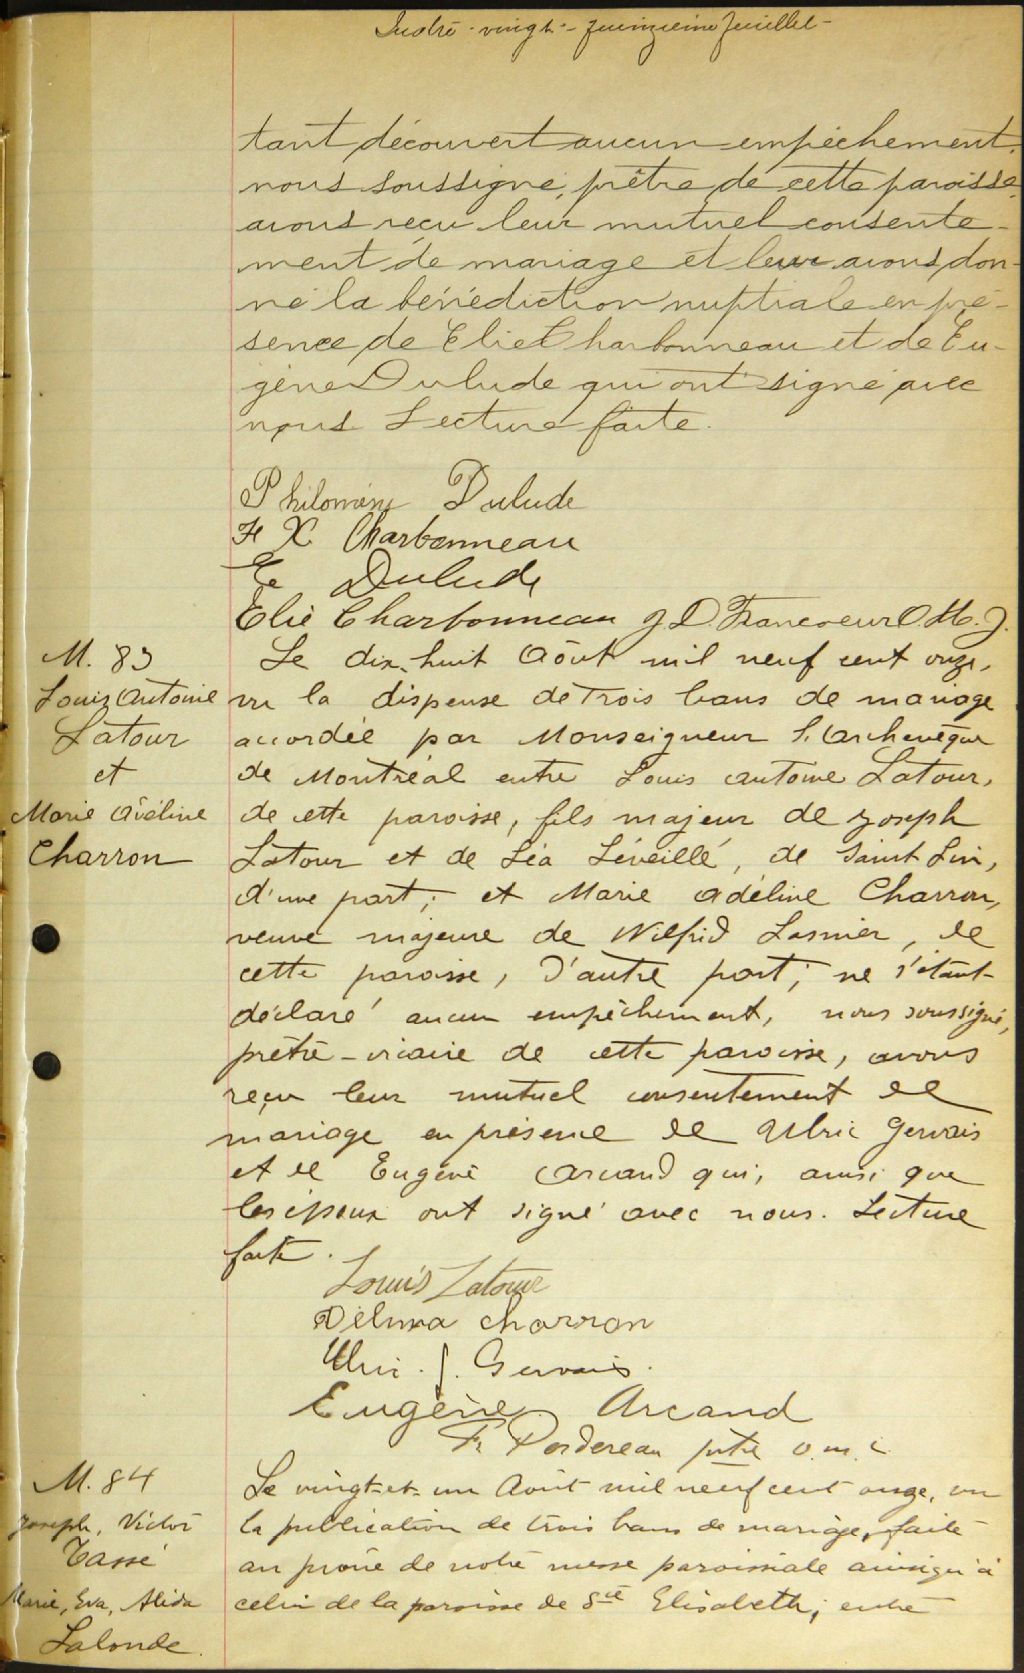 Quatre-vingt-quinzième feuillet-
tant découvert aucun empêchement,
nous soussigné, prêtre de cette paroisse,
avons reçu leur mutuel consente-
ment de mariage et leur avons don-
né la bénédiction nuptiale en pré-
sence de Elie Charbonneau et de Eu-
gène Dulude qui ont signé avec
nous Lecture faite.
Philomène Dulude
F X Charbonneau
E Dulude
Elie Charbonneau J D Francoeur O.M.J.
M. 83
Louis Antoine
Latour
et
Marie Adéline
Charron
Le dix-huit Août mil neuf cent onze,
vu la dispense de trois bans de mariage
accordée par Monseigneur l'Archevêque
de Montréal entre Louis Antoine Latour,
de cette paroisse, fils majeur de Joseph
Latour et de Léa Léveillé, de Saint Lin,
d'une part; et Marie Adéline Charron,
veuve majeure de Wilfrid Lasnier, de
cette paroisse, d'autre part; ne s'étant
déclaré aucun empêchement, nous soussigné,
prêtre-vicaire de cette paroisse, avons
reçu leur mutuel consentement de
mariage en présence de Ulric Gervais
et de Eugène Arcand qui, ainsi que
les époux ont signé avec nous. Lecture
faite.
Louis Latour
Delima Charron
Ulric. J. Gervais.
Eugène Arcand
Perdereau ptre o.m.i.
M. 84
Joseph, Victor
Tassé
Marie, Eva, Alida
Lalonde.
Le vingt-et-un Août mil neuf cent onze, vu
la publication de trois bans de mariage, faite
au prône de notre messe paroissiale ainsi qu'à
celui de la paroisse de Ste Elisabeth; entre